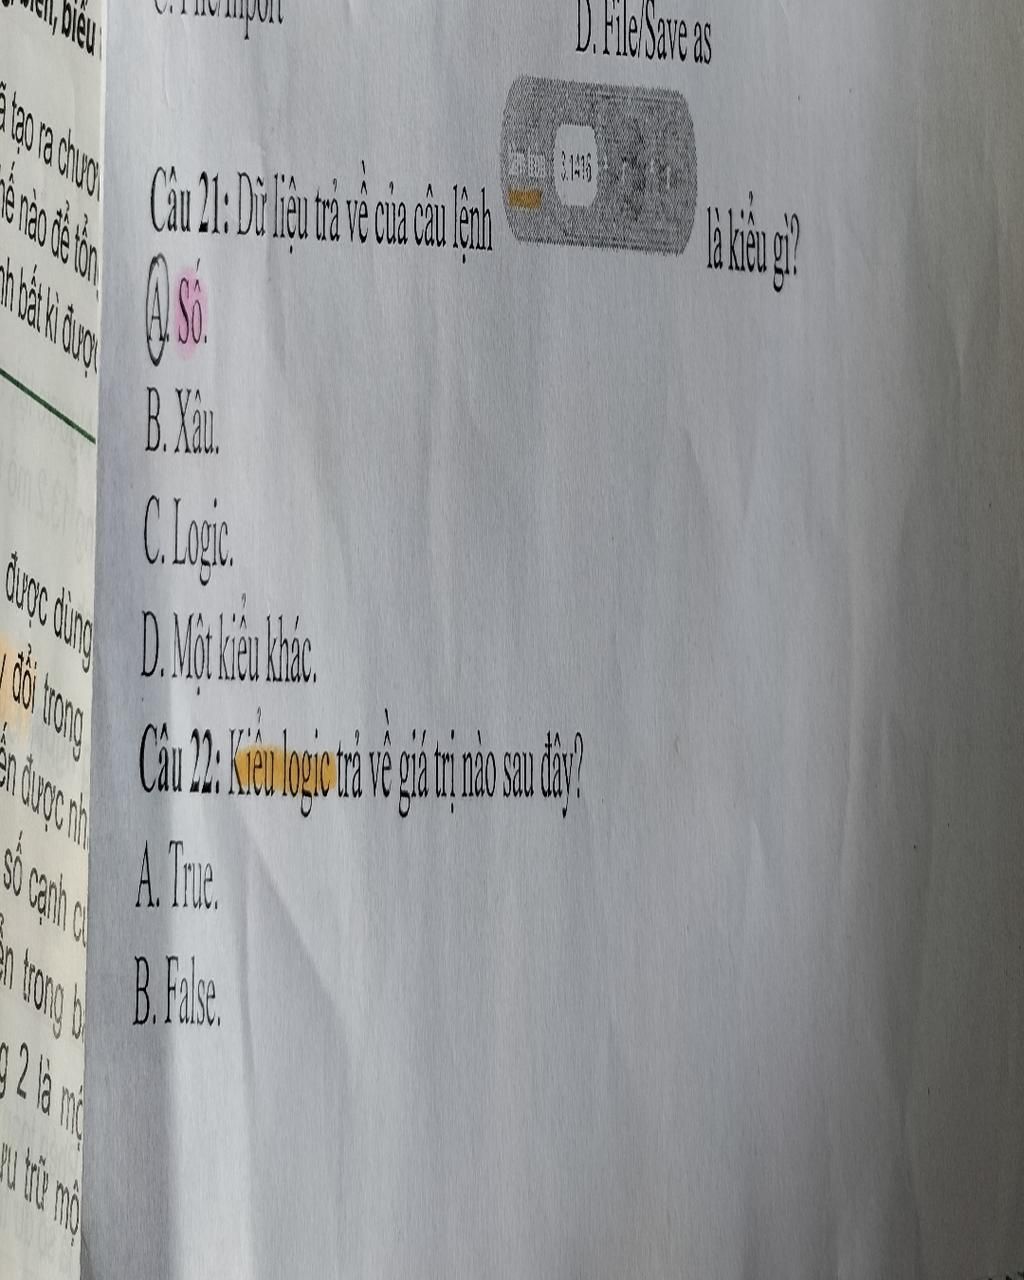 biến, biểu
ã tạo ra chươ
hế nào để tổn
nh bất kì được
được dùng
đổi trong
ến được nh
số cạnh
trong b
2 là
trữ
C. File/Import
D. File/Save as
Câu 21: Dữ liệu trả về của câu lệnh 3.1416 là kiểu gì?
A. Số.
B. Xâu.
C. Logic.
D. Một kiểu khác.
Câu 22: Kiểu logic trả về giá trị nào sau đây?
A. True.
B. False.